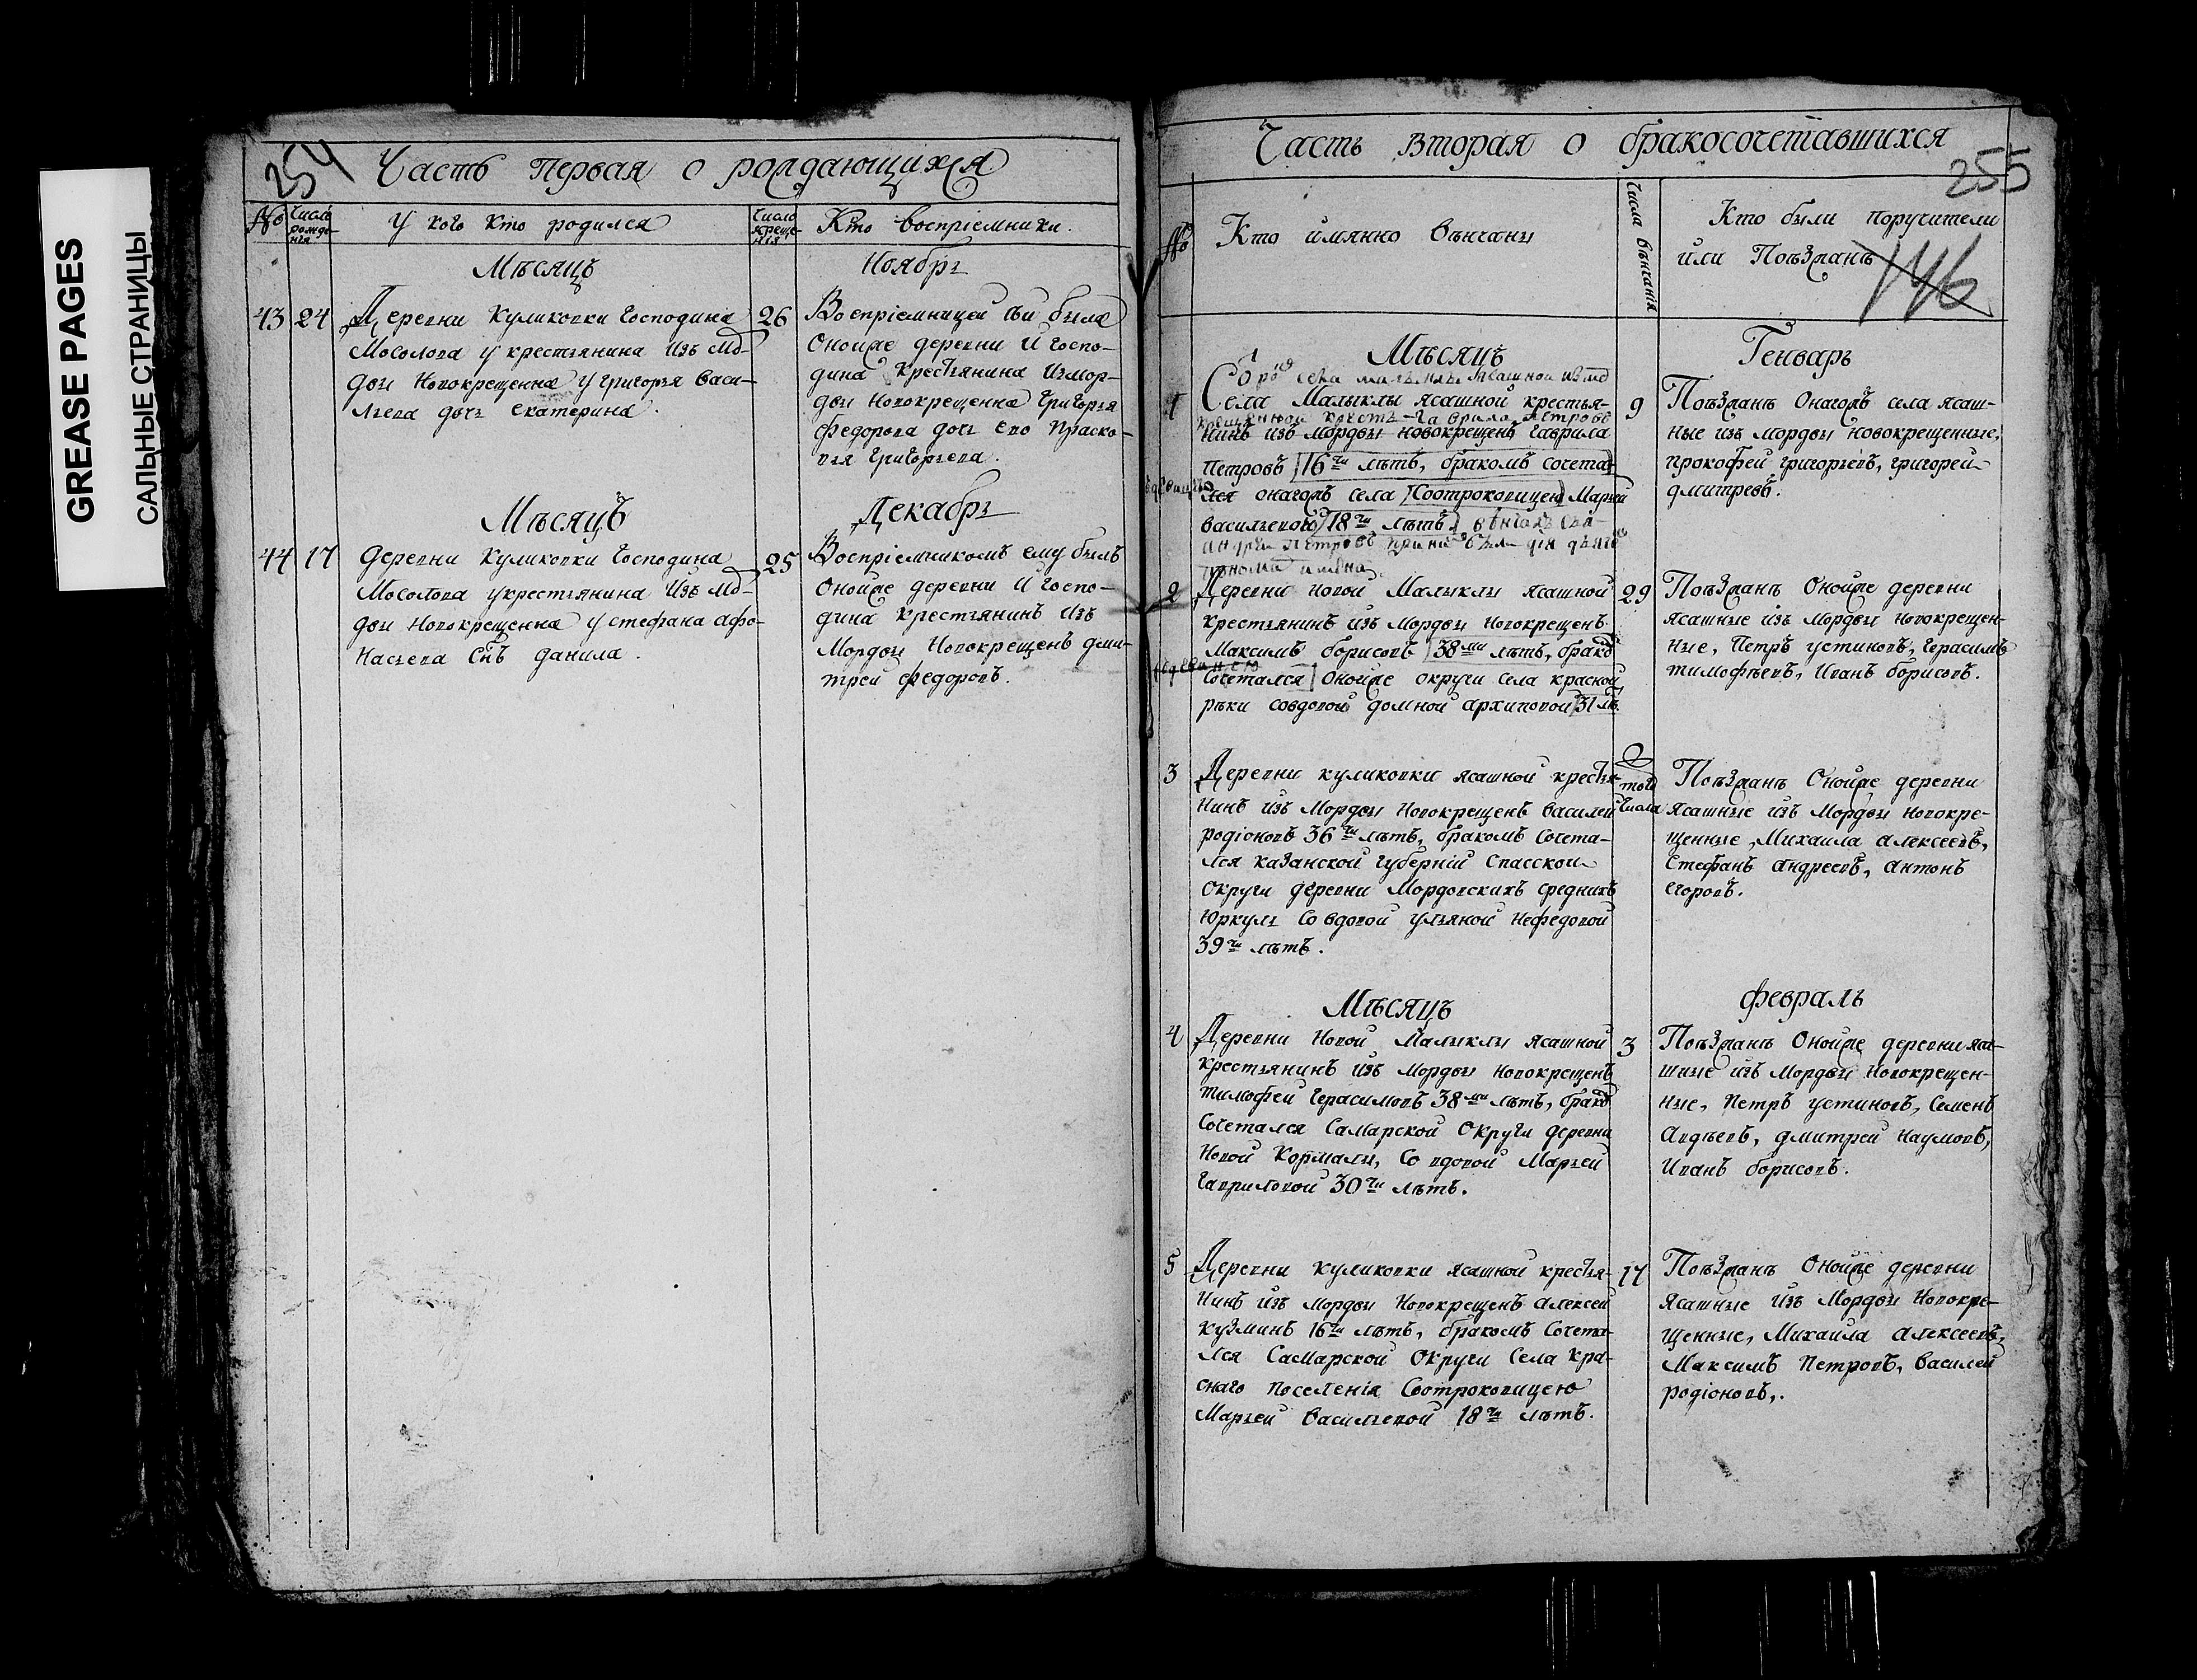 GREASE PAGES
САЛЬНЫЕ СТРАНИЦЫ
254
Часть первая о рождающихся
№
Число рожде-
нія
У кого кто родился
Число
креще-
нія
Кто воспріемники.
Мѣсяцъ
Ноябрь
43
24
Деревни Куликовки Господина
Мосолова у крестьянина изъ Мо-
двы Новокрещенна у григорья васи-
льева дочь екатерина.
26
Воспріемницей ѣи была
Оной же деревни и госпо-
дина крестьянина измор-
двы новокрещенна григорья
федорова дочь ево праско-
вья григорьева.
Мѣсяцъ
Декабрь
44
17
деревни Куликовки Господина
Мосолова укрестьянина изъ Мо-
двы Новокрещенна у стефана афо-
насьева Снъ данила.
25
Воспріемникомъ ему былъ
Оной же деревни и госпо-
дина крестьянинъ изъ
Мордвы Новокрещенъ дми-
трей федоровъ.
Часть вторая о бракосочетавшихся
255
№
Кто имянно вѣнчаны
Числа вѣнчанія
Кто были поручители
или Поѣзжанѣ
146
Мѣсяцъ
Генварь
1
Села Малыклы ясашной крестья-
нинъ изъ мордвы новокрещенъ гаврила
петровъ 16ти лѣтъ, бракомъ сочета-
лся онагожъ села Соотроковицею Марьей
васильевою 18ти лѣтъ
9
Поѣзжанѣ Онагожъ села ясаш-
ные изъ мордвы новокрещенные,
прокофей григорьевъ, григорей
дмитревъ.
2
Деревни новой Малыклы ясашной
крестьянинъ изъ мордвы новокрещенъ
Максимъ борисовъ 38ми лѣтъ, брако
Сочетался Оной же округи села красной
рѣки совдовой домной архиповой 31 лѣ
29
Поѣзжанѣ Оной же деревни
ясашные изъ мордвы новокрещен-
ные, Петръ устиновъ, герасимъ
тимофѣевъ, Иванъ борисовъ.
3
Деревни куликовки ясашной крестья-
нинъ изъ Мордвы Новокрещенъ василей
родіоновъ 36ти лѣтъ, бракомъ Сочета-
лся казанской губерніи спасской
Округи деревни Мордовскихъ среднихъ
Юркуль Со вдовой ульяной Нефедовой
39ти лѣтъ.
того
числа
Поѣзжанѣ Оной же деревни
ясашные изъ Мордвы новокре-
щенные, Михаила алексеевъ,
Стефанъ андреевъ, антонъ
егоровъ.
Мѣсяцъ
февраль
4
Деревни Новой Малыклы ясашной
крестьянинъ изъ мордвы новокрещенъ
тимофей герасимовъ 38ми лѣтъ, брако
Сочетался Самарской Округи деревни
Новой Кормалы, Со вдовой Марьей
гавриловой 30ти лѣтъ.
3
Поѣзжанѣ Оной же деревни яса-
шные изъ Мордвы Новокрещен-
ные, Петръ устиновъ, Семенъ
Авдѣевъ, дмитрей Наумовъ,
Иванъ борисовъ.
5
Деревни куликовки ясашной крестья-
нинъ изъ мордвы Новокрещенъ алексей
кузминъ 16ти лѣтъ, бракомъ Сочета-
лся Самарской Округи Села кра-
снаго поселенія Соотроковицею
Марьей васильевой 18ти лѣтъ.
17
Поѣзжанѣ Оной же деревни
ясашные изъ Мордвы Новокре-
щенные, Михаила алексеевъ,
Максимъ Петровъ, василей
родіоновъ.